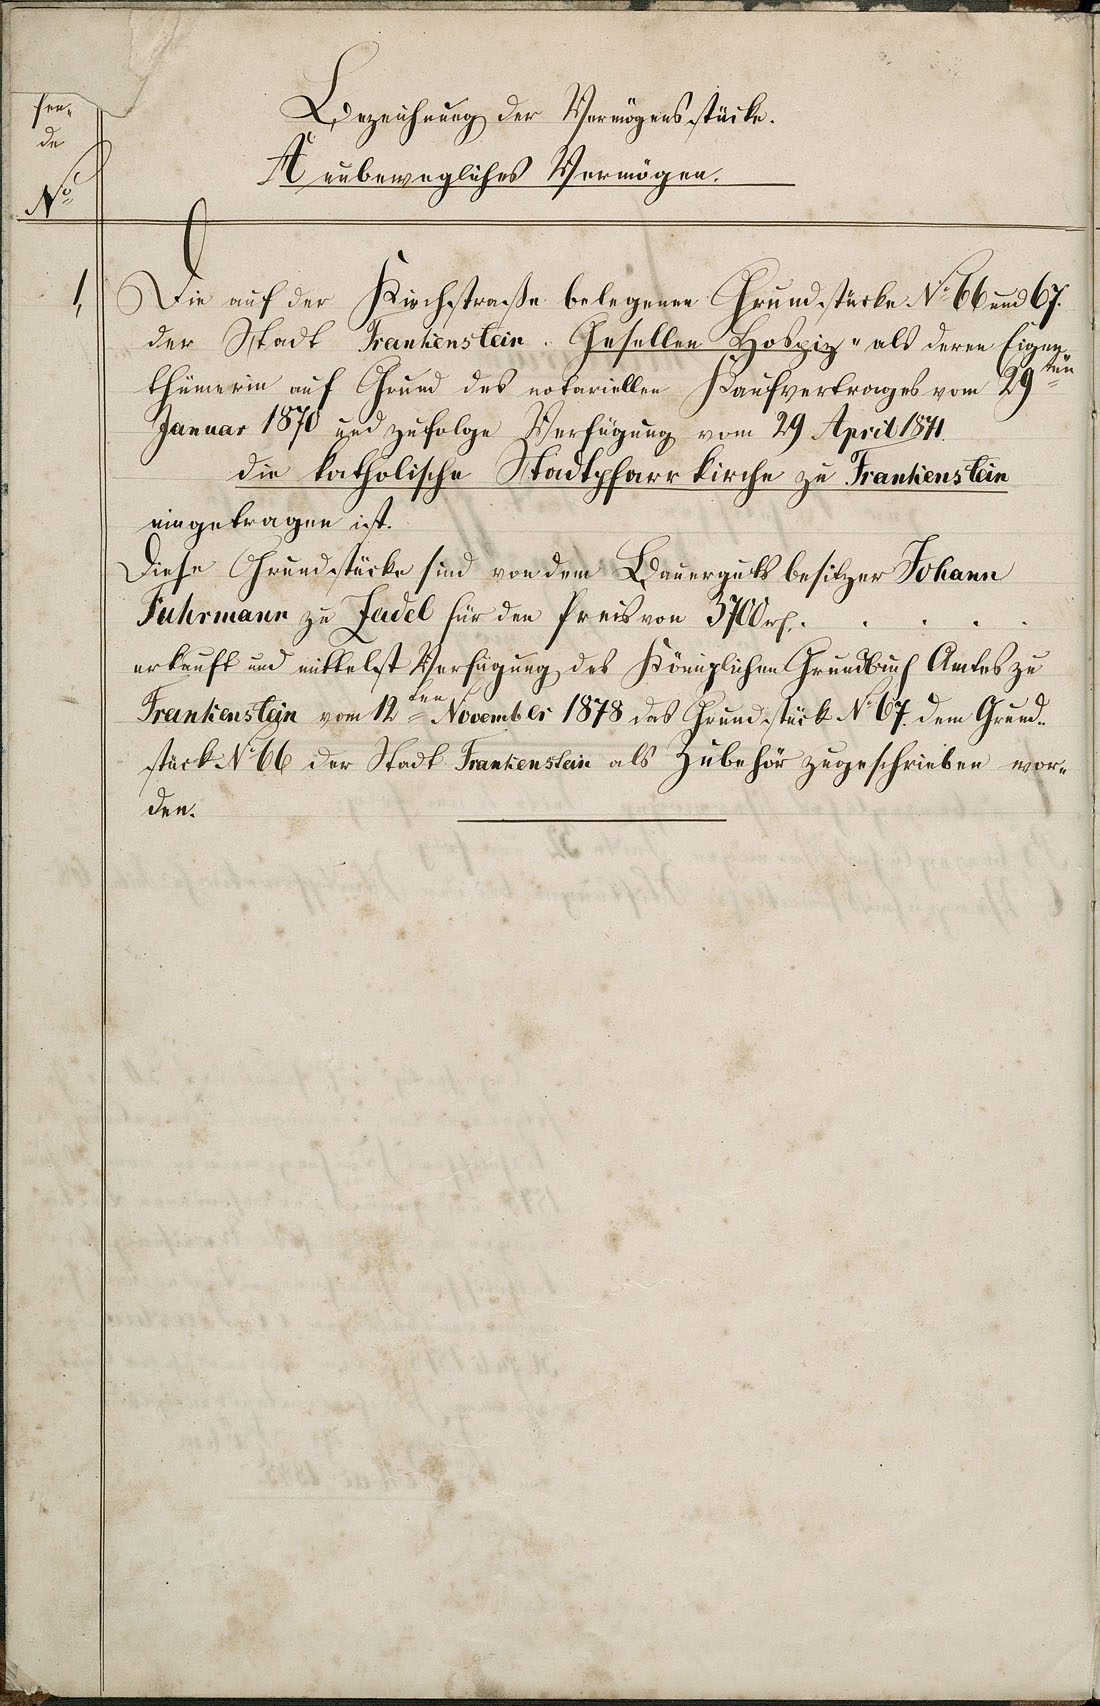 sen-
de
No
Bezeichnung der Vermögensstücke.
A unbewegliches Vermögen.
1, Die auf der Kirchstraße belegenen Grundstücke No 66 und 67.
der Stadt Frankenstein „Gesellen Hospiz" als deren Eigen-
thümerin auf Grund des notariellen Kaufvertrages vom 29ten
Januar 1870 und zufolge Verfügung vom 29 April 1871.
die katholische Stadtpfarrkirche zu Frankenstein
eingetragen ist.
Diese Grundstücke sind von dem Bauergutsbesitzer Johann
Fuhrmann zu Zadel für den Preis von 3700 rh. . . . . .
erkauft und mittelst Verfügung des Königlichen Grundbuch Amtes zu
Frankenstein vom 12ten November 1878 das Grundstück No 67. dem Grund-
stück No 66 der Stadt Frankenstein als Zubehör zugeschrieben wor-
den.